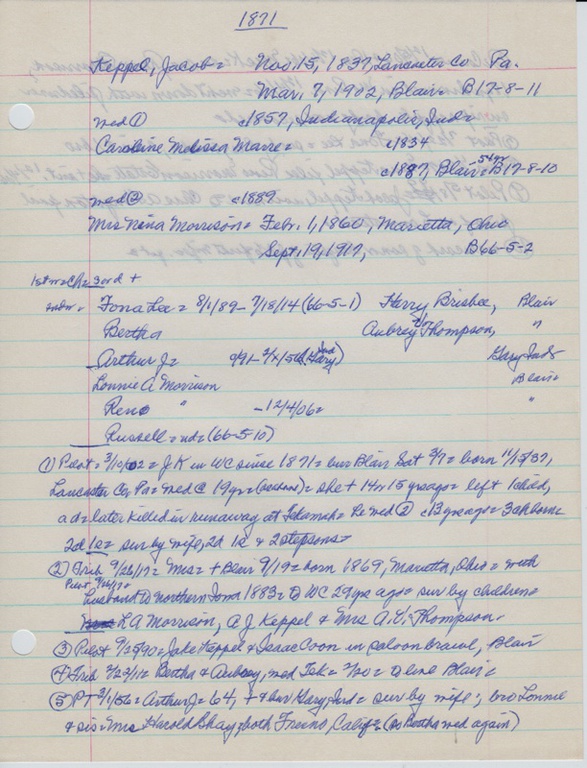 1871
Keppel, Jacob = Nov. 15, 1837, Lancaster Co Pa.
Mar. 7, 1902, Blair = B17-8-11
med ① c1857, Indianapolis, Ind =
Caroline Melissa = c1834
54 yr
c1887, Blair = B17-8-10
med ② c1889
Mrs Nina Morrison = Febr. 1, 1860, Marietta, Ohio
Sept. 19, 1917, B66-5-2
1st m 3 d +
Iona Lee = 8/1/89 - 7/18/14 (66-5-1) Harry Brisbee, Blair
Bertha Aubrey Thompson, "
Arthur J = c/91 - 2/ /56 (Gary Ind) Gary Ind =
Lonnie A Morrison Blair =
Reno " - 12/4/06 =
Russell = nd = (66-5-10)
① Pilot = 3/10/02 = J K in WC since 1871 = bur Blair Sat 3/7 = born 11/15/37,
Lancaster Co, Pa = med C 19 yr = = she + 14 or 15 yrs ago = left 1 child,
a d = later killed in runaway at Tekamah = he med ② c13 yrs ago = 3 ch born
2d 1s = sur by wife, 2d 1s & 2 stepsons =
② Trib 9/26/17 = Mrs = + Blair 9/19 = born 1869, Marietta, Ohio = with
Pilot 9/26/17 =
husband to northern Iowa 1883 = to WC 29 yrs ago = sur by children =
L A Morrison, A J Keppel & Mrs A. V. Thompson =
③ Pilot 9/25/90 = Jake Keppel & Isaac Coon in saloon brawl, Blair
④ Trib 2/23/11 = Bertha & Aubrey, med Tek = 2/20 = to live Blair =
⑤ PT 3/1/56 = Arthur J = 64, + & bur Gary, Ind = sur by wife; bro Lonnie
& sis = Mrs Harold = both Fresno, Calif = (so Bertha med again)